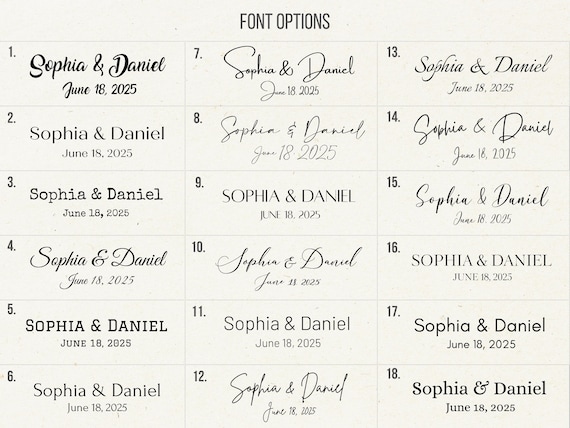 FONT OPTIONS
1.
Sophia & Daniel
June 18, 2025
2.
Sophia & Daniel
June 18, 2025
3.
Sophia & Daniel
June 18, 2025
4.
Sophia & Daniel
June 18, 2025
5.
SOPHIA & DANIEL
JUNE 18, 2025
6.
Sophia & Daniel
June 18, 2025
7.
Sophia & Daniel
June 18, 2025
8.
Sophia & Daniel
June 18 2025
9.
SOPHIA & DANIEL
JUNE 18, 2025
10.
Sophia & Daniel
June 18, 2025
11.
Sophia & Daniel
June 18, 2025
12.
Sophia & Daniel
June 18, 2025
13.
Sophia & Daniel
June 18, 2025
14.
Sophia & Daniel
June 18, 2025
15.
Sophia & Daniel
June 18, 2025
16.
SOPHIA & DANIEL
JUNE 18, 2025
17.
Sophia & Daniel
June 18, 2025
18.
Sophia & Daniel
June 18, 2025